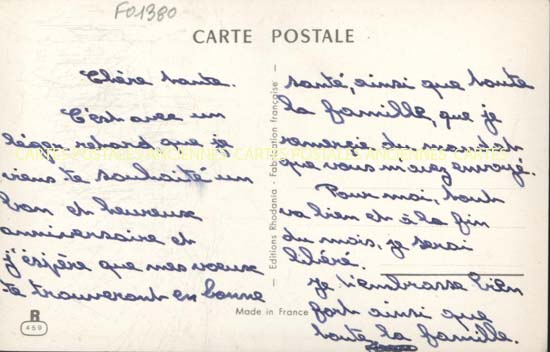 F01380
CARTE POSTALE
Chère tante.
C'est avec un
léger retard que je
viens te souhaité un
bon et heureux
anniversaire et
j'éspère que mes voeux
te trouveront en bonne
santé, ainsi que toute
la famille, que je
remercie du mandat
que vous m'avez envoyé.
Pour moi, tout
va bien et à la fin
du mois, je serai
libéré.
Je t'embrasse bien
fort ainsi que
toute la famille.
Editions Rhodania - Fabrication française
Made in France
R
459
CARTES POSTALES ANCIENNES CARTES POSTALES ANCIENNES CARTES